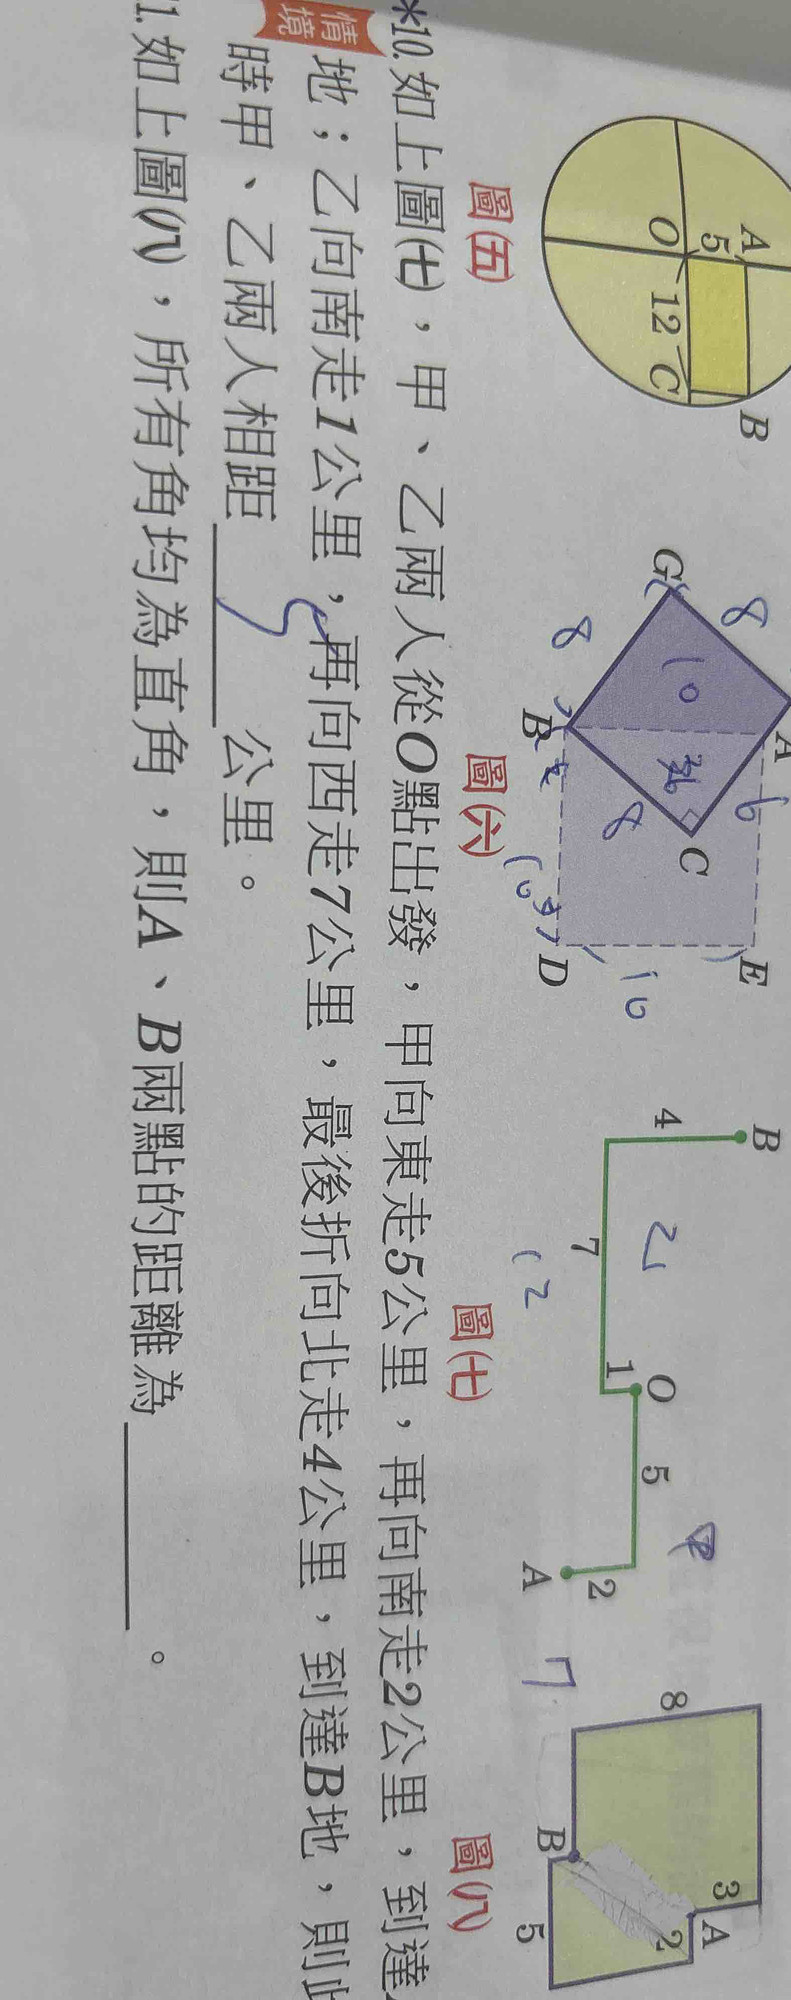 A
5
O
12
C
B
圖(五)
G
8
8
10
36
A
6
B
8
C
E
D
10
圖(六)
B
4
乙
7
12
1
O
5
甲
2
A
圖(七)
7
8
3
A
2
B
5
圖(八)
*10. 如上圖(七),甲、乙兩人從O點出發,甲向東走5公里,再向南走2公里,到達
情境
地;乙向南走1公里,再向西走7公里,最後折向北走4公里,到達B地,則此
時甲、乙兩人相距 公里。
1. 如上圖(八),所有角均為直角,則A、B兩點的距離為 。